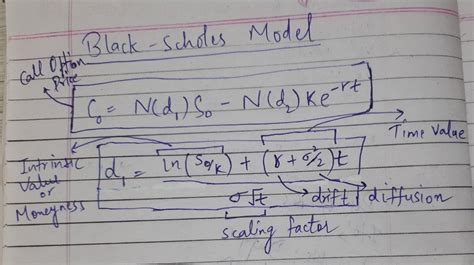 Black-Scholes Model
Call Option Price
C₀ = N(d₁)S₀ - N(d₂)Ke^-rt
Time Value
Intrinsic Value or Moneyness
d₁ = ln(S₀/K) + (r + σ²/2)t
σ√t
drift
diffusion
scaling factor